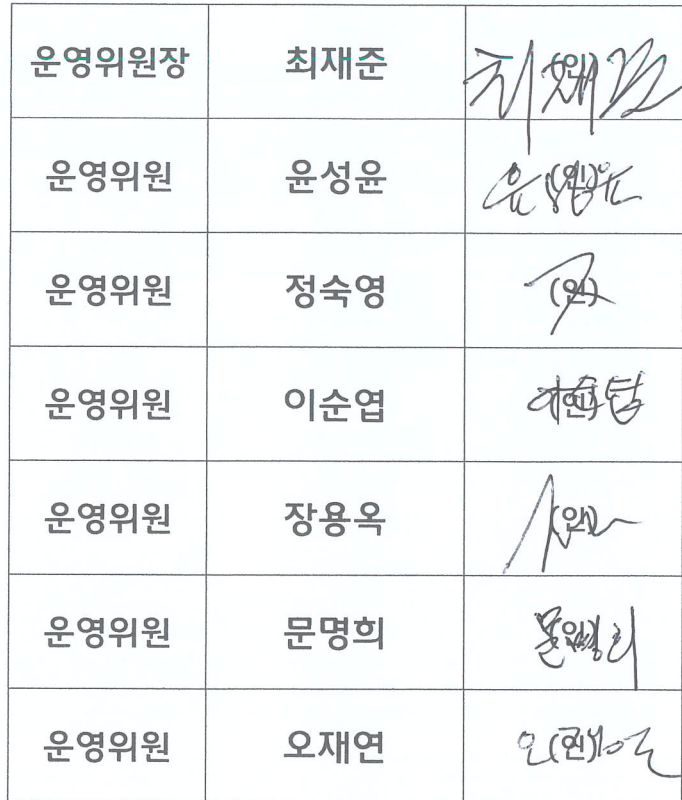 운영위원장 최재준 (인)
운영위원 윤성윤 (인)
운영위원 정숙영 (인)
운영위원 이순엽 (인)
운영위원 장용옥 (인)
운영위원 문명희 (인)
운영위원 오재연 (인)